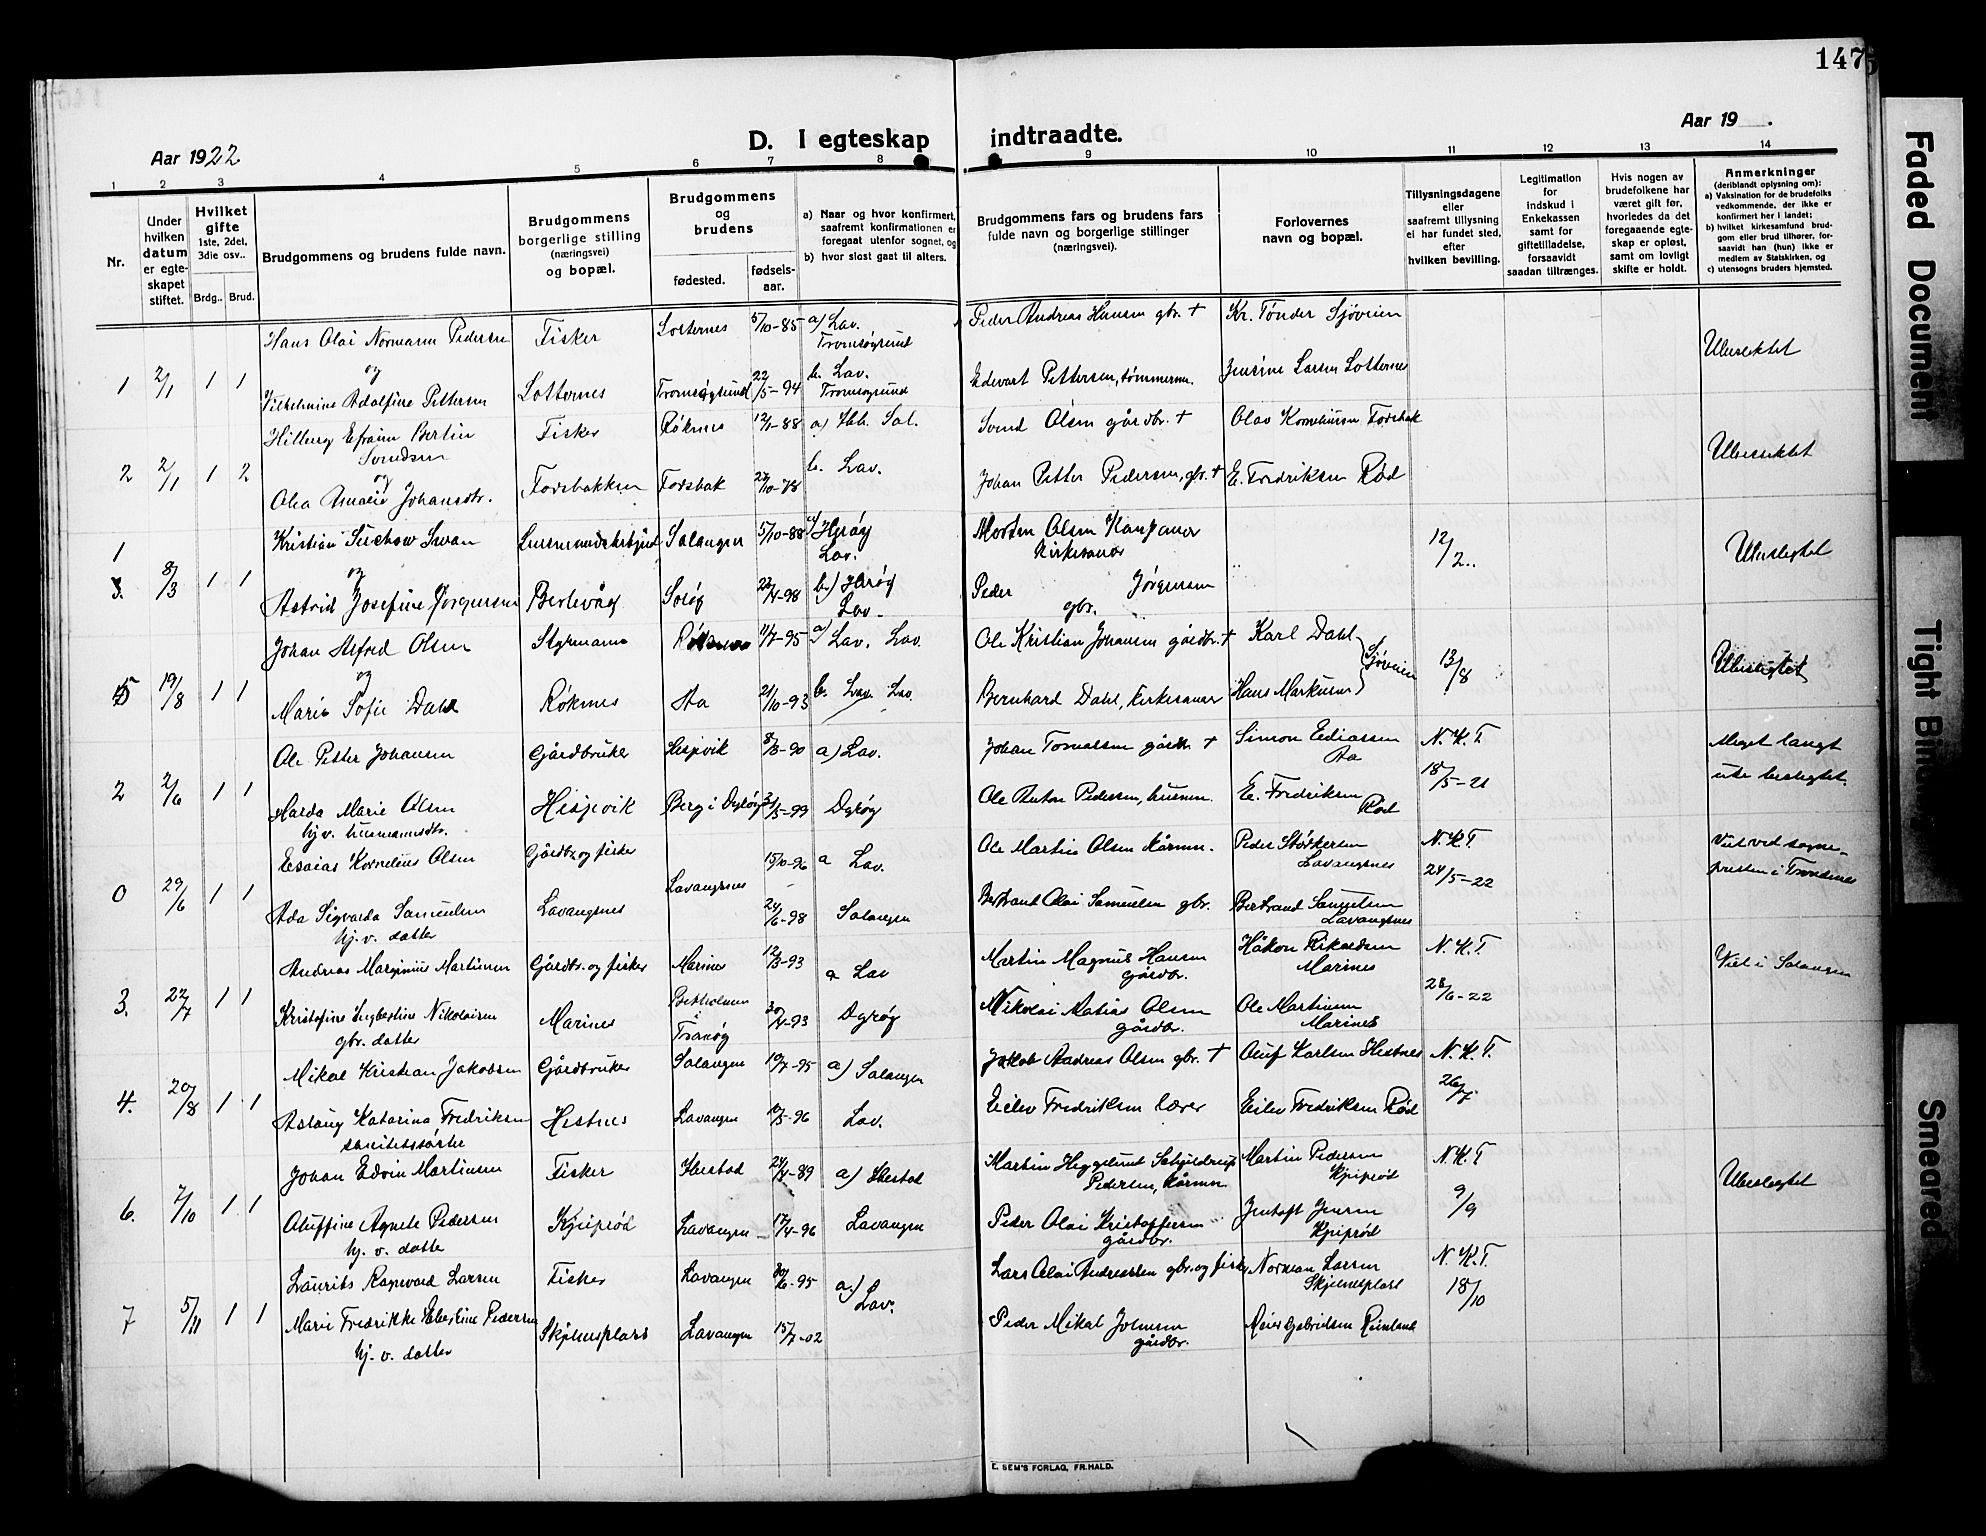 147
Aar 1922
D. I egteskap indtraadte.
Aar 19 .
1 2 3 4 5 6 7 8 9 10 11 12 13 14
Nr.
Under hvilken datum er egteskapet stiftet.
Hvilket gifte 1ste, 2det, 3die osv..
Brdg.. Brud.
Brudgommens og brudens fulde navn.
Brudgommens borgerlige stilling (næringsvei) og bopæl.
Brudgommens og brudens
fødested. fødsels-aar.
a) Naar og hvor konfirmert, saafremt konfirmationen er foregaat utenfor sognet, og
b) hvor sidst gaat til alters.
Brudgommens fars og brudens fars fulde navn og borgerlige stillinger (næringsvei).
Forlovernes navn og bopæl.
Tillysningsdagene eller saafremt tillysning ei har fundet sted, efter hvilken bevilling.
Legitimation for indskud i Enkekassen samt for giftetilladelse, forsaavidt saadan tiltrænges.
Hvis nogen av brudefolkene har været gift før, hvorledes da det foregaaende egteskap er opløst, samt om lovligt skifte er holdt.
Anmerkninger (deriblandt oplysning om):
a) Vaksination for de brudefolks vedkommende, der ikke er konfirmert her i landet;
b) hvilket kirkesamfund brudgom eller brud tilhører, forsaavidt han (hun) ikke er medlem av Statskirken, og
c) utensogns bruders hjemsted.
Hans Olai Normann Pedersen Fisker Lotternes 5/10-85 a) Lav. Tromsøysund Peder Andreas Hansen gbr. † Kr. Tønder Sjøveien
1 2/1 1 1 og Ubeslektet
Vilhelmine Adolfine Pettersen Lotternes Tromsøysund 22/5-94 b. Lav. Tromsøysund Edevart Pettersen, tømmerm. Jensine Larsen Lotternes
Hilberg Efraim Berlin Svendsen Fisker Røknes 12/1-88 a) Ibb. Sal. Svend Olsen gårdbr. † Olav Kornelius­sen Fosbak
2 2/1 1 2 og Ubeslektet
Olea Amalie Johansdtr. Fossbakken Fossbak 27/10-78 b. Lav. Johan Petter Pedersen, gbr. † E. Fredriksen Rød
Kristian Svan Salangen 5/10-88 a) Herøy Lav. Morten Olsen Kirkesanger 12/2
1 3. 8/3 1 1 og Ubeslegtet
Astrid Josefine Jørgensen Berlevåg Sørøy 23/4-98 b) Herøy Lav. Peder Jørgensen gbr.
Johan Alfred Olsen Styrmann Røknes 11/7-95 a) Lav. Lav. Ole Kristian Johansen gårdbr. † Karl Dahl Sjøveien 13/8
5 19/8 1 1 og Ubeslegtet
Marie Sofie Dahl Røknes Aa 21/10-93 b. Lav. Lav. Bernhard Dahl, kirkesanger Hans Markussen
Ole Petter Johansen Gårdbruker Hesjevik 8/3-90 a) Lav. Johan Tomassen gårdbr. † Simon Ediassen Aa N. K. T. Meget langt
2 2/6 1 1 18/5-21 ute beslegtet.
Harda Marie Olsen hj.v. husmannsdtr. Hesjevik Berg i Dyrøy 31/5-99 Dyrøy Ole Anton Pedersen, husm. E. Fredriksen Rød
Esaias Kornelius Olsen Gårdbr. og fisker Lavangsnes 15/10-96 a Lav. Ole Martin Olsen kårmn. Peder Størkersen Lavangsnes N. K. T Viet ved sogne-
0 29/6 1 1 24/5-22 presten i Trondenes
Ada Sigvarda Samuelsen hj. v. datter Lavangsnes 24/6-98 Salangen Bertrand Olai Samuelsen gbr. Bertrand Samuelsen Lavangsnes
Andreas Marginius Martinsen Gårdbr. og fisker Marines 12/3-93 a Lav Martin Magnus Hansen gårdbr. Håkon Rikardsen Marines N. K. T. Viet i Salangen
3. 22/7 1 1 28/6-22
Kristofine Ingbertine Nikolaisen gbr. datter Marines Tranøy 30/4-93 Dyrøy Nikolai Matias Olsen gårdbr. Ole Martinsen Marines
Mikal Kristian Jakobsen Gårdbruker Salangen 19/7-95 a) Salangen Jakob Andreas Olsen gbr. † Oluf Karlsen Hestnes N. K. T.
4. 20/8 1 1 26/7
Aslaug Katarina Fredriksen sanitetssøster Hestnes Lavangen 10/5-96 Lav. Eilev Fredriksen lærer Eilev Fredriksen Rød
Johan Edvin Martinsen Fisker Ibestad 24/3-89 a) Ibestad Martin Heggelund Schjeldrup Pedersen, kårmn. Martin Pedersen Kjeiprød N. K. T
6. 7/10 1 1 9/9 Ubeslegtet
Oluffine Agnete Pedersen hj. v. datter Kjeiprød Lavangen 17/4-96 Lavangen Peder Olai Kristoffersen gårdbr. Jentoft Jensen Kjeiprød
Laurits Ragnvard Larsen Fisker Lavangen 30/6-95 a.) Lav. Lars Olai Andreassen gbr. og fisker Norman Larsen Skjelnesplass N. K. T.
7 5/11 1 1 18/10
Marie Fredrikke Edestine Pedersen hj. v. datter Skjelnesplass Lavangen 15/7-02 Peder Mikal Johnsen gårdbr. Meier Gabrielsen Reinland
E. SEM'S FORLAG, FR.HALD.
Faded Document
Tight Bind
Smeared